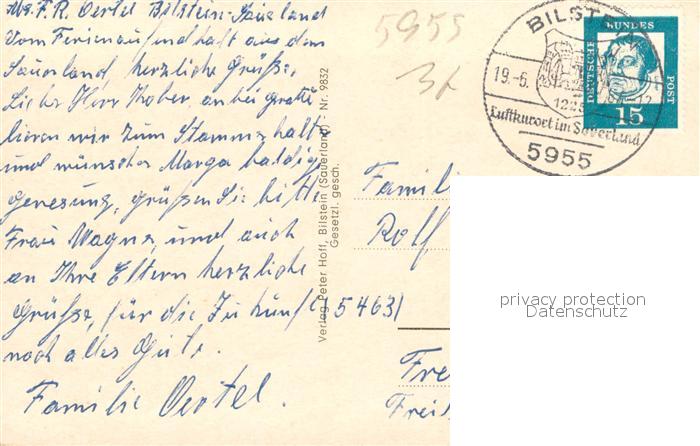 Abs. F. R. Oertel Bilstein-Sauerland
Vom Ferienaufendhalt aus dem
Sauerland, herzliche Grüße.
Lieber Herr Thober, anbei gratu
lieren wir zum Stammhalter
und wünschen Marga baldige
genesung, grüßen Sie bitte
Frau Wagner, und auch
an Ihre Eltern herzliche
Grüße, für die Zukunft
noch alles Gute.
Familie Oertel.
Verlag Peter Hoff, Bilstein (Sauerland) - Nr. 9832
Gesetzl. gesch.
5955
BILSTEIN
19.-6.
1225
Luftkurort im Sauerland
5955
DEUTSCHE
BUNDES
POST
15
Famili
Rolf
(5463)
Fre
Frei
privacy protection
Datenschutz